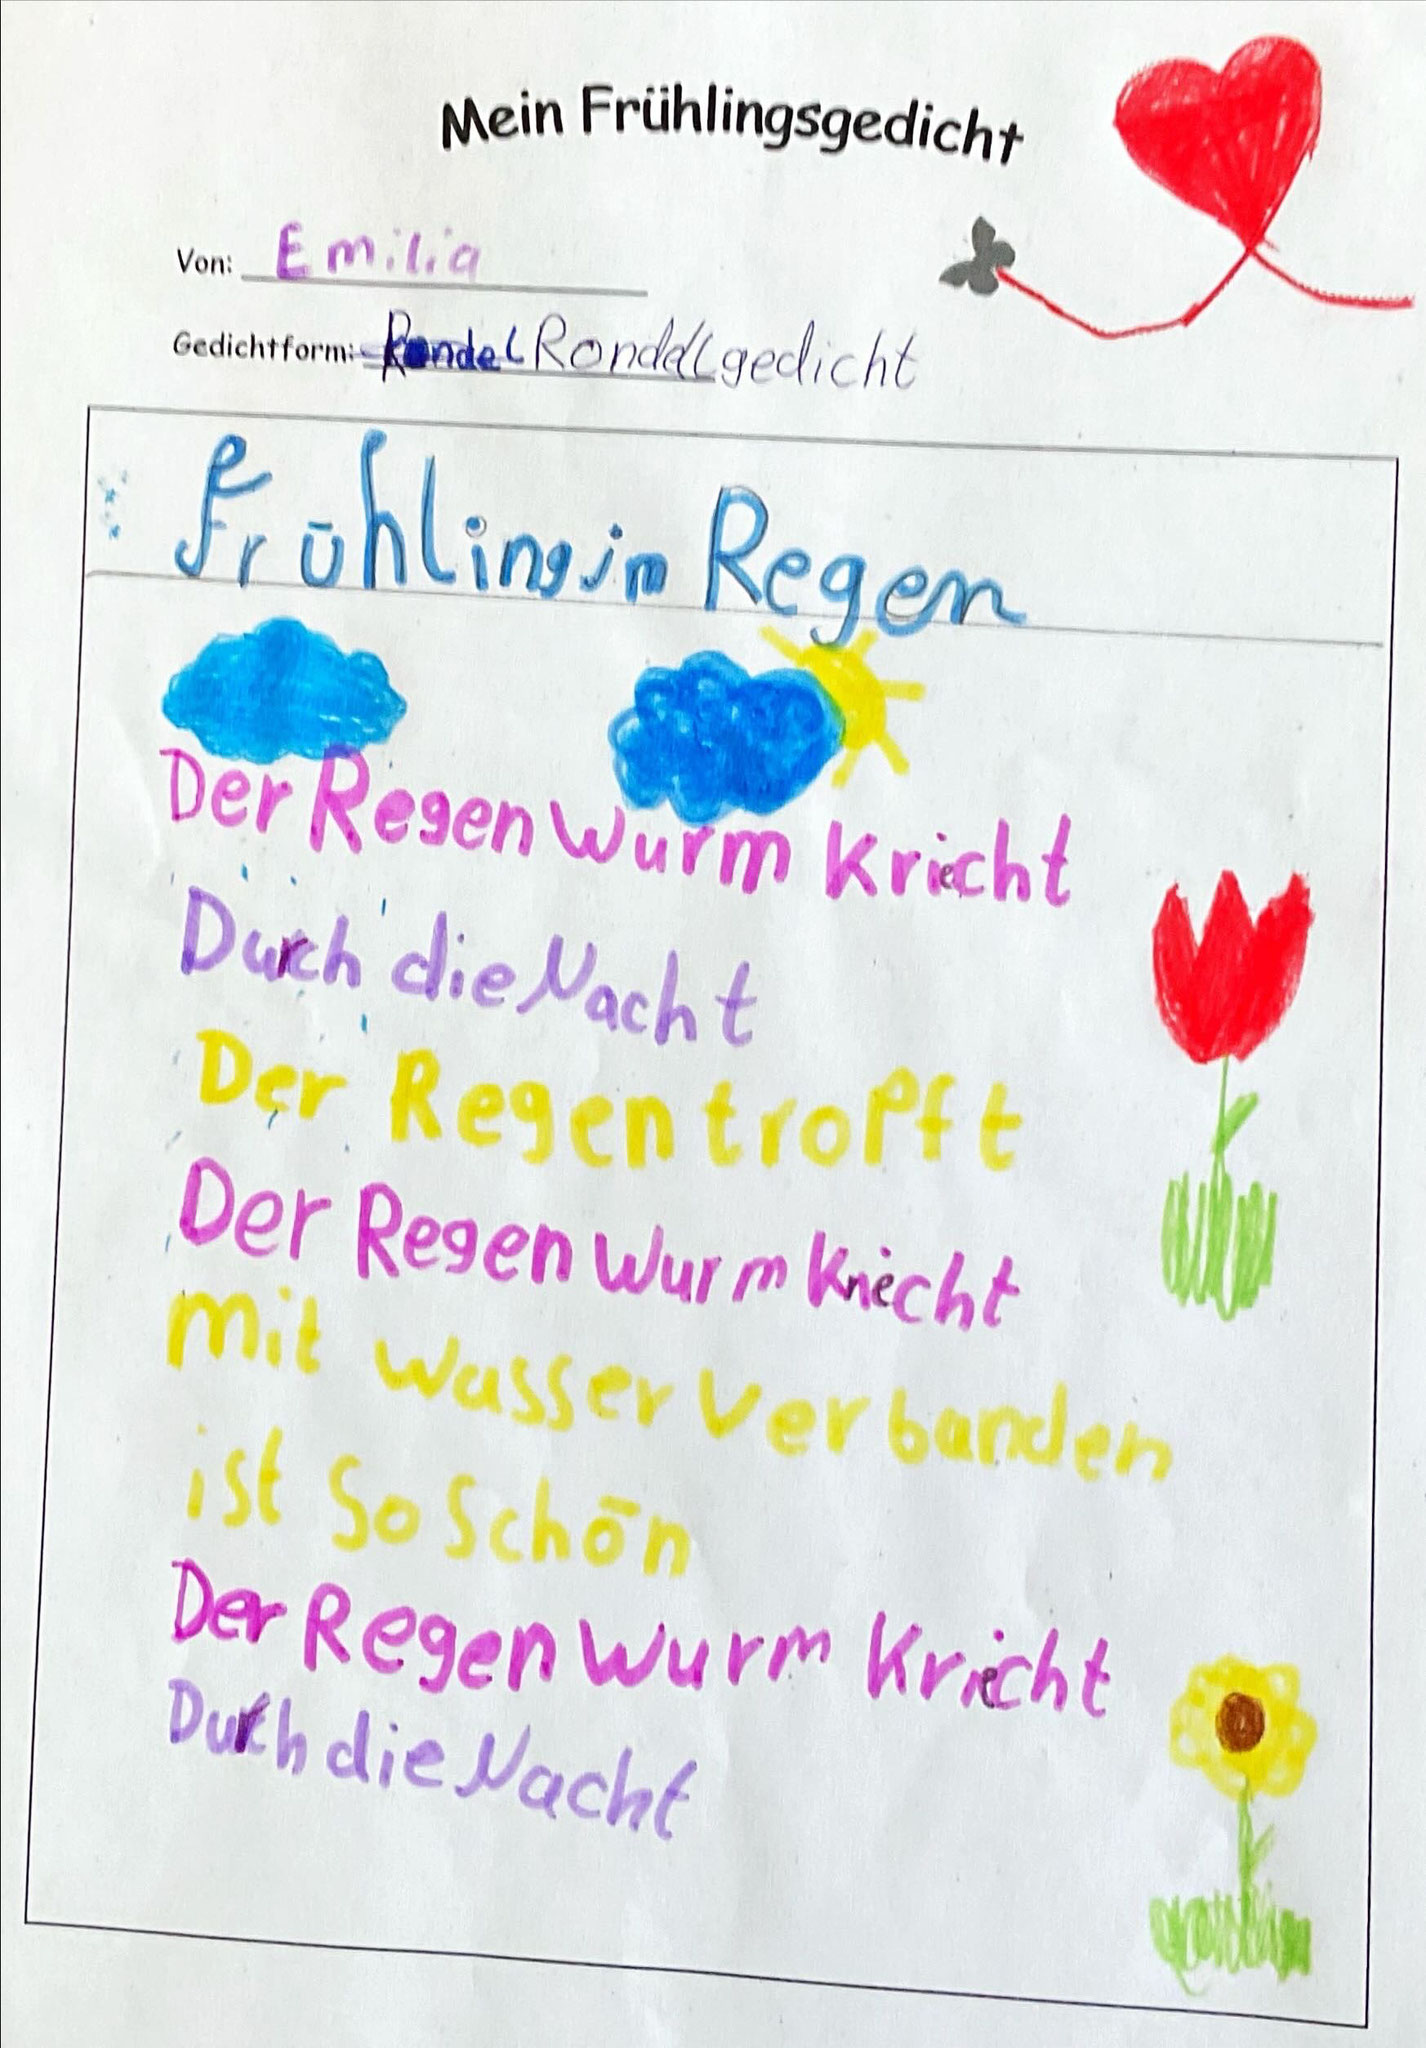 Mein Frühlingsgedicht
Von: Emilia
Gedichtform: Rondel Rondelgedicht
Frühling im Regen
Der Regen Wurm Kriecht
Durch die Nacht
Der Regen tropft
Der Regen Wurm Kriecht
mit wasser verbanden
ist so schön
Der Regen Wurm Kriecht
Durch die Nacht